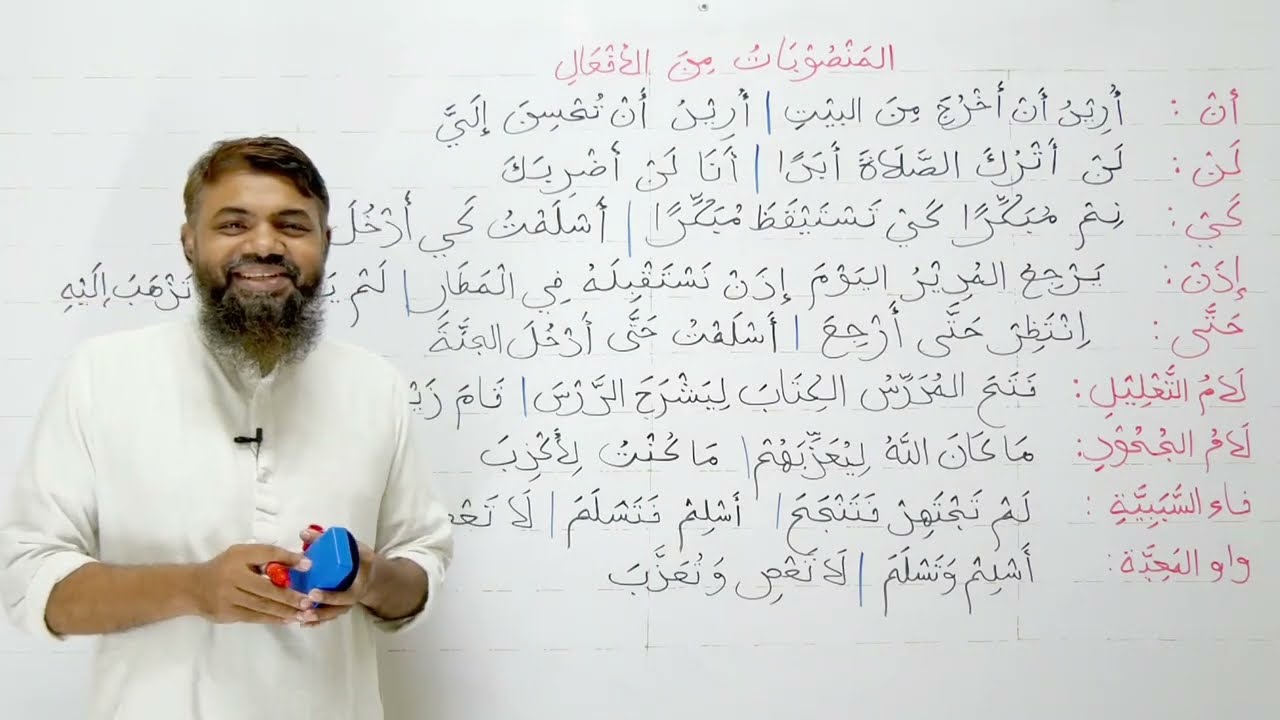 المَنْصُوْبَاتُ مِنَ الأَفْعَالِ
أَنْ : أُرِيْدُ أَنْ أَخْرُجَ مِنَ البَيْتِ | أُرِيْدُ أَنْ تُحْسِنَ إِلَيَّ
لَنْ : لَنْ أَتْرُكَ الصَّلَاةَ أَبَدًا | أَنَا لَنْ أَضْرِبَكَ
كَيْ : نِمْ مُبَكِّرًا كَيْ تَسْتَيْقَظَ مُبَكِّرًا | أَسْلَمْتُ كَي أَدْخُلَ
إِذَنْ : يَرْجِعُ المُدِيْرُ اليَوْمَ إِذَنْ نَسْتَقْبِلَهُ فِي الْمَطَارِ | لَمْ تَذْهَبَ إِلَيْهِ
حَتَّى : اِنْتَظِرْ حَتَّى أَرْجِعَ | أَسْلَمْتُ حَتَّى أَدْخُلَ الجَنَّةَ
لَامُ التَّعْلِيْلِ : فَتَحَ المُدَرِّسُ الكِتَابَ لِيَشْرَحَ الدَّرْسَ | قَامَ
لَامُ الجُحُوْدِ : مَا كَانَ اللهُ لِيُعَذِّبَهُمْ | مَا كُنْتُ لِأَكْذِبَ
فاء السَّبَبِيَّةِ : لَمْ تَجْتَهِدْ فَتَنْجَحَ | أَسْلِمْ فَتَسْلَمَ | لَا
واو المَعِيَّة : أَسْلِمْ وَتَسْلَمَ | لَا تَعْصِ وَتُعَذَّبَ